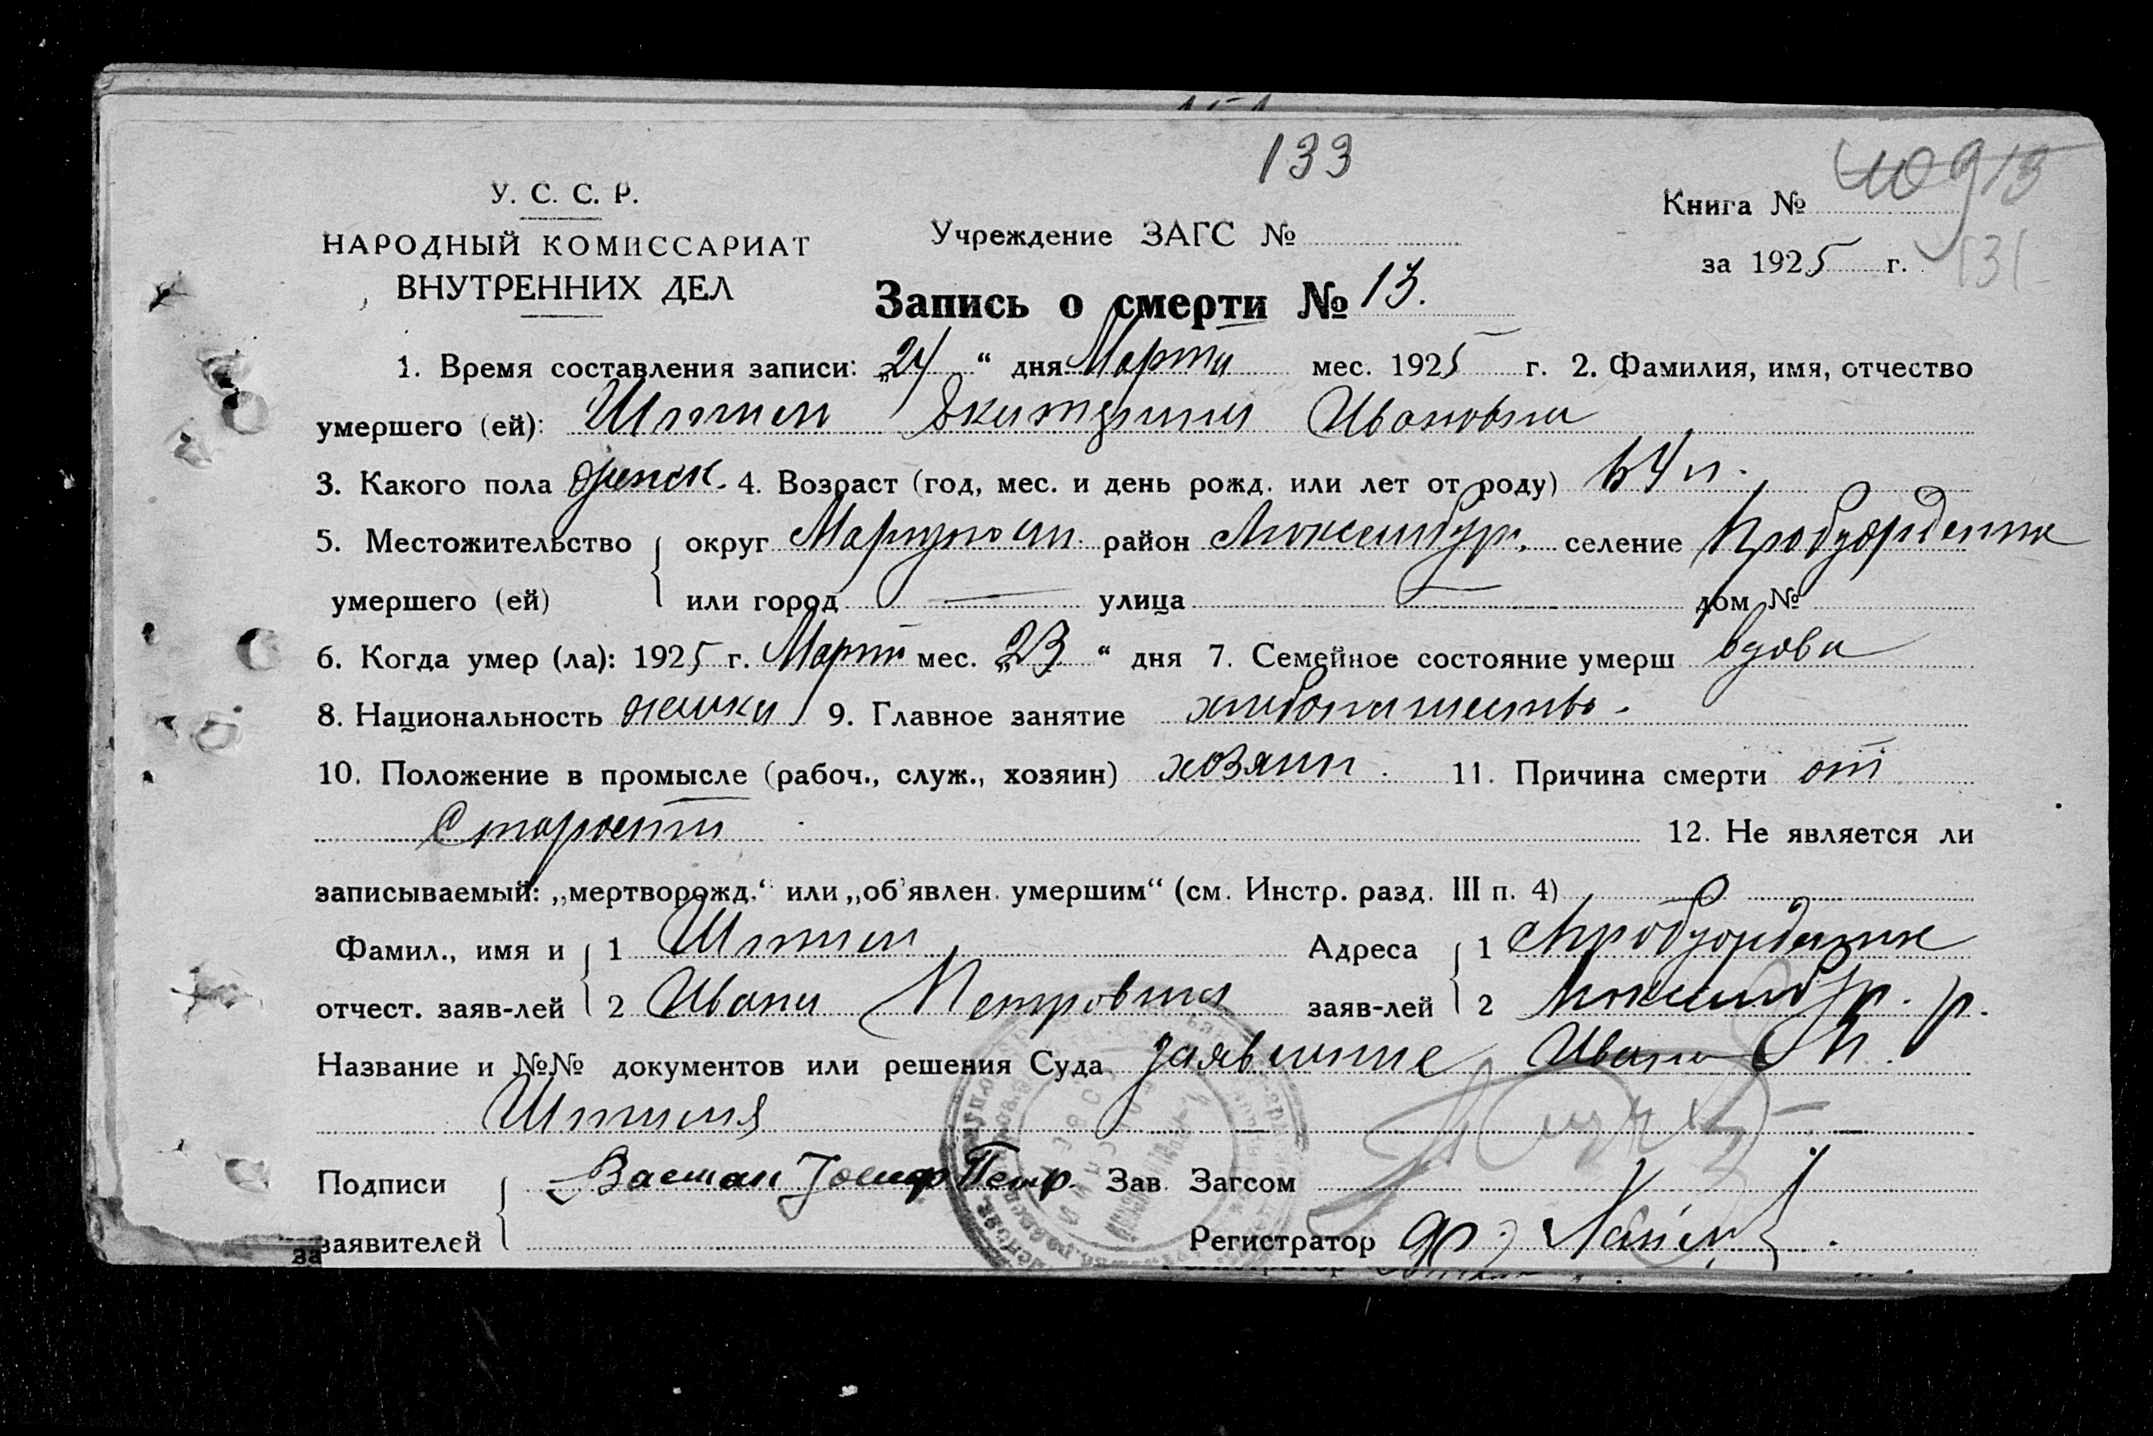 133
У. С. С. Р.
НАРОДНЫЙ КОМИССАРИАТ
ВНУТРЕННИХ ДЕЛ
Учреждение ЗАГС №
Книга №
за 1925 г.
131
Запись о смерти № 13.
1. Время составления записи: „24 “ дня Марта мес. 1925 г. 2. Фамилия, имя, отчество
умершего (ей): Екатерина Ивановна
3. Какого пола женск. 4. Возраст (год, мес. и день рожд. или лет от роду)
5. Местожительство округ Мариупольск. район Люксембург. селение
умершего (ей) или город — улица — дом №
6. Когда умер (ла): 1925 г. Март мес. „23 “ дня 7. Семейное состояние умерш вдова
8. Национальность немка 9. Главное занятие хлебопашество.
10. Положение в промысле (рабоч., служ., хозяин) хозяин. 11. Причина смерти от
Старости 12. Не является ли
записываемый: „мертворожд.“ или „об'явлен. умершим“ (см. Инстр. разд. III п. 4)
Фамил., имя и 1 Адреса 1
отчест. заяв-лей 2 Ивана Петровича заяв-лей 2 Люксембур. р.
Название и №№ документов или решения Суда заявление Ивана П.
Подписи Васман Иосиф Петр. Зав. Загсом
заявителей Регистратор